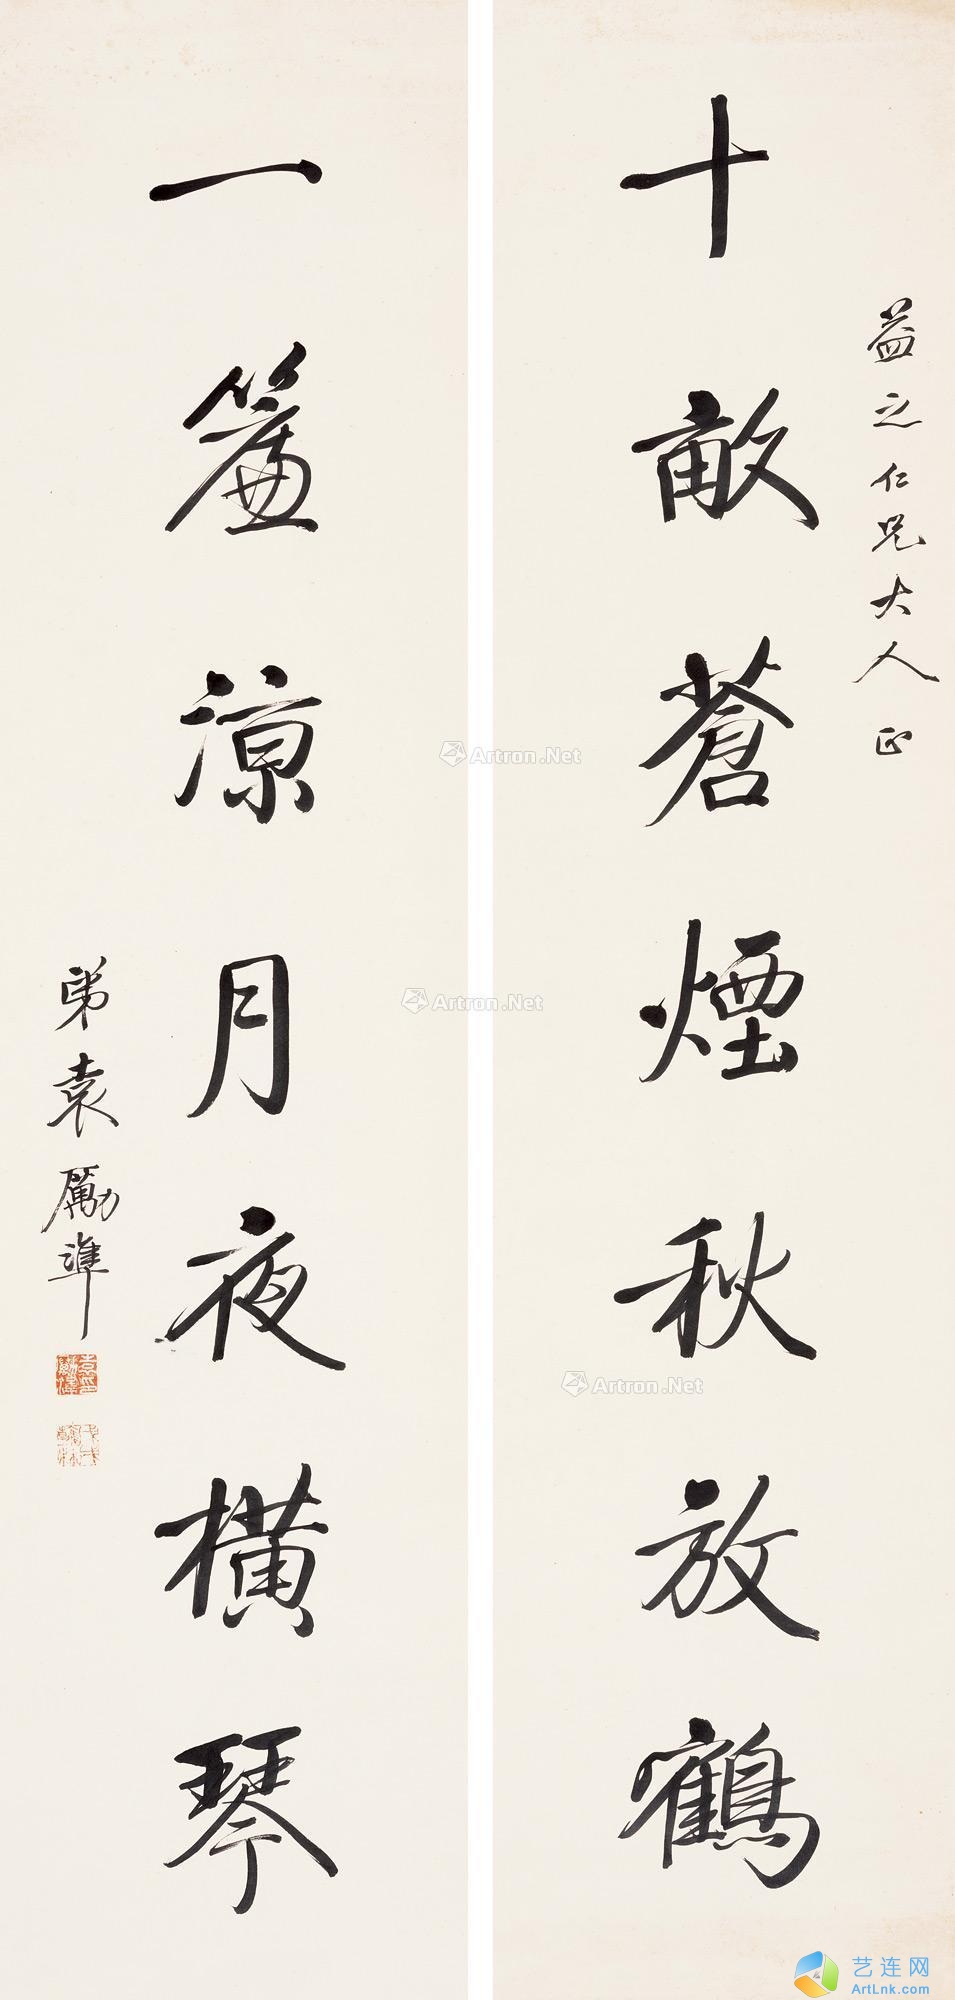 益之仁兄大人 正
十畝蒼煙秋放鶴
一簾涼月夜橫琴
弟袁勵準
Artron.Net
Artron.Net
Artron.Net
艺连网
ArtLnk.com